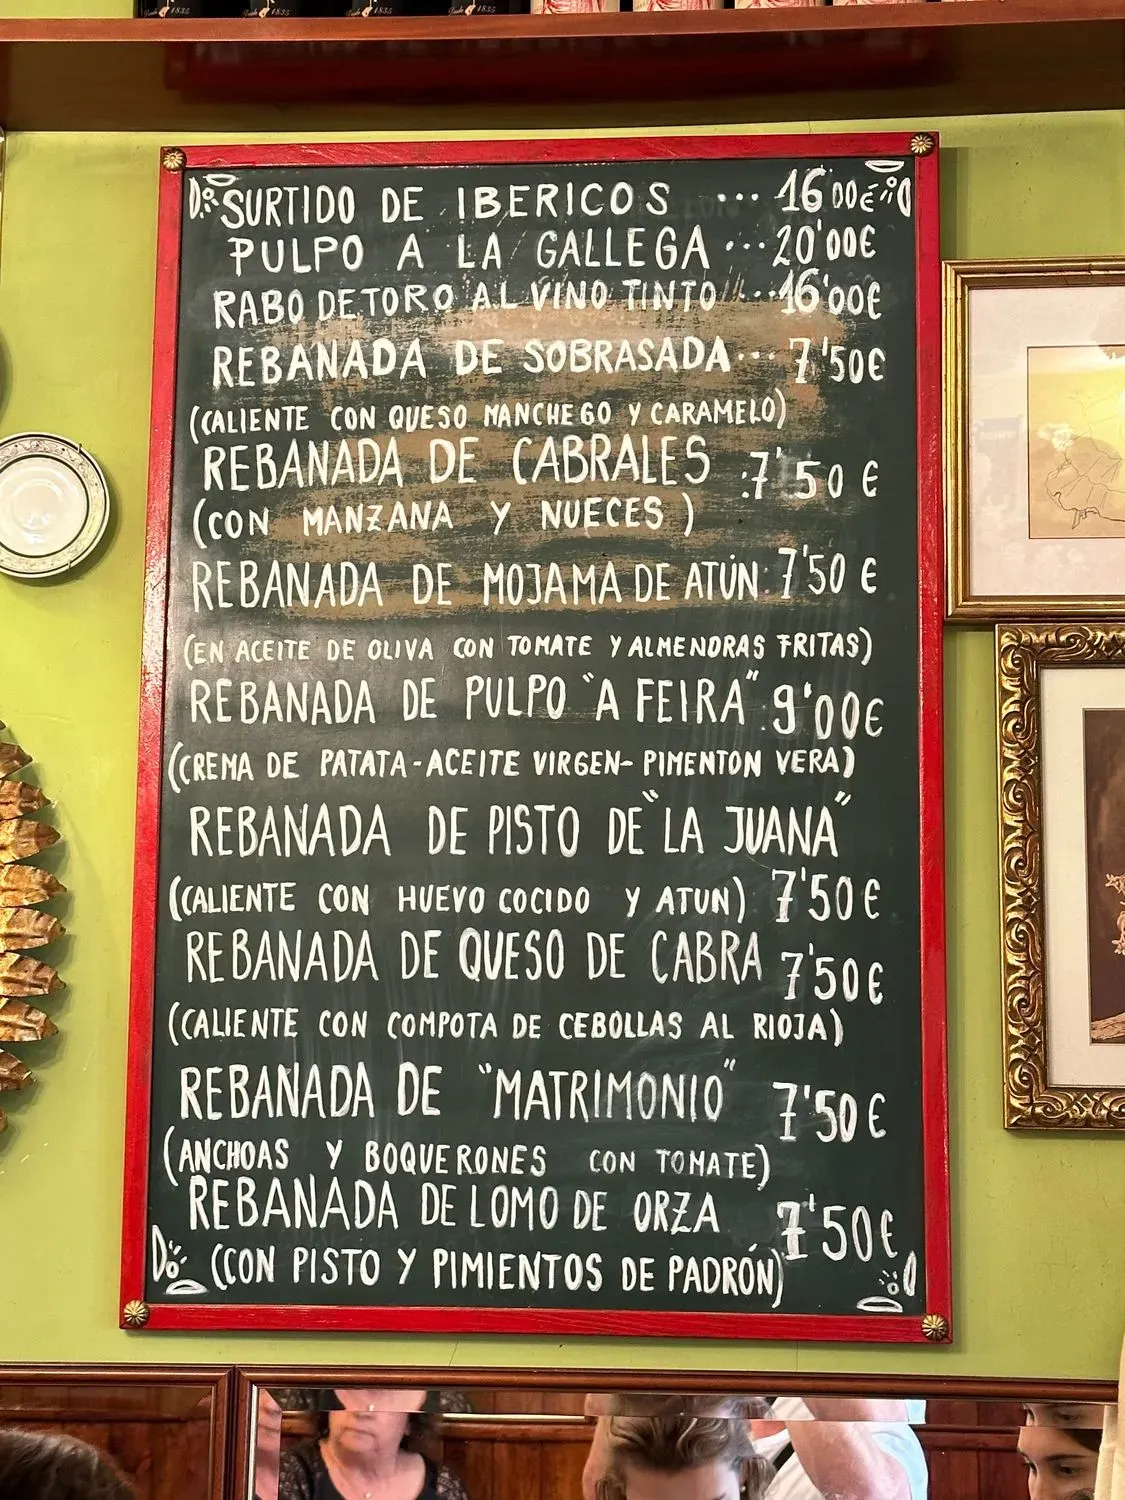 SURTIDO DE IBERICOS ... 16'00€
PULPO A LA GALLEGA ... 20'00€
RABO DE TORO AL VINO TINTO ... 16'00€
REBANADA DE SOBRASADA ... 7'50€
(CALIENTE CON QUESO MANCHEGO Y CARAMELO)
REBANADA DE CABRALES : 7'50 €
(CON MANZANA Y NUECES)
REBANADA DE MOJAMA DE ATÚN: 7'50 €
(EN ACEITE DE OLIVA CON TOMATE Y ALMENDRAS FRITAS)
REBANADA DE PULPO "A FEIRA": 9'00€
(CREMA DE PATATA-ACEITE VIRGEN-PIMENTON VERA)
REBANADA DE PISTO DE "LA JUANA"
(CALIENTE CON HUEVO COCIDO Y ATUN) 7'50€
REBANADA DE QUESO DE CABRA 7'50€
(CALIENTE CON COMPOTA DE CEBOLLAS AL RIOJA)
REBANADA DE "MATRIMONIO" 7'50€
(ANCHOAS Y BOQUERONES CON TOMATE)
REBANADA DE LOMO DE ORZA 7'50€
(CON PISTO Y PIMIENTOS DE PADRÓN)